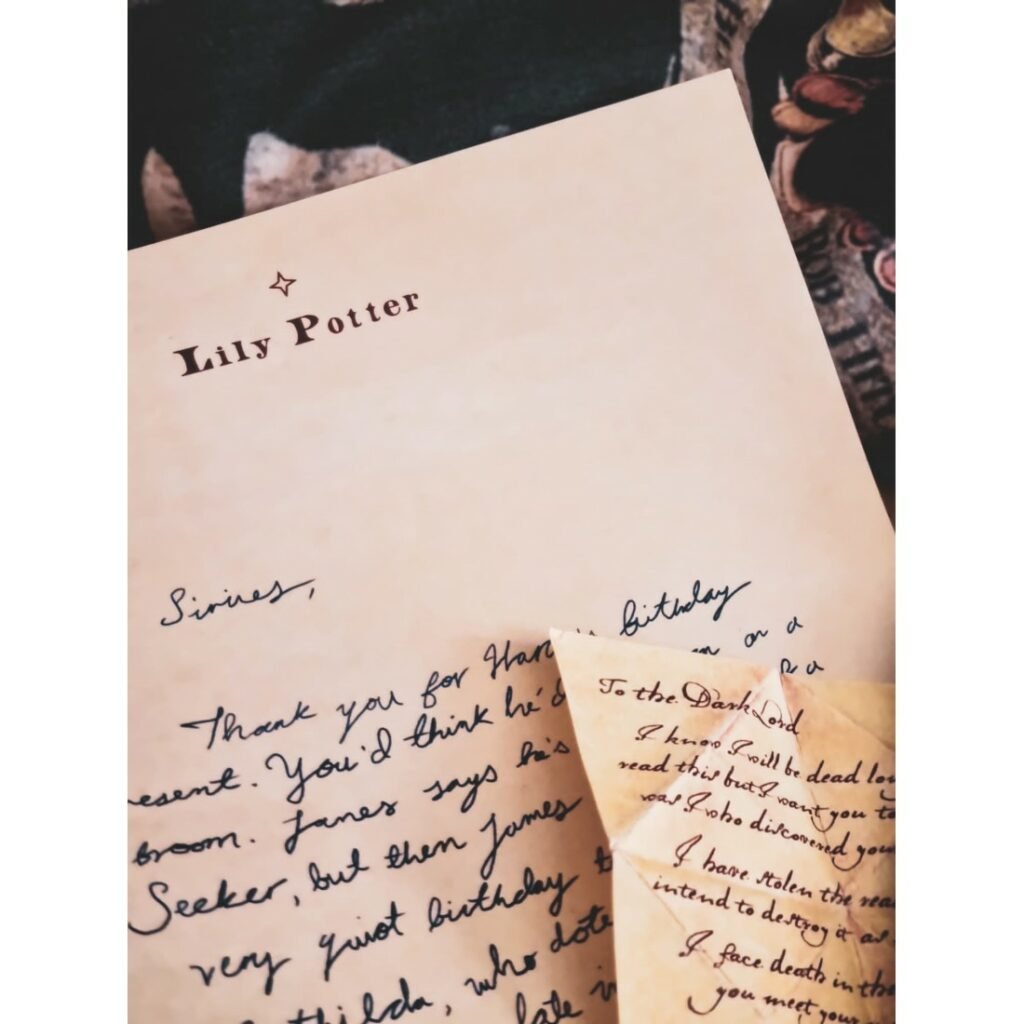 Lily Potter
Sirius,
Thank you for Har birthday
esent. You'd think he'd on a
broom. James says he's
Seeker, but then James
very quiot birthday
thilda, who dote
late
To the Dark Lord
I know I will be dead lon
read this but I want you to
was I who discovered your
I have stolen the rea
intend to destroy it as
I face death in the
you meet your